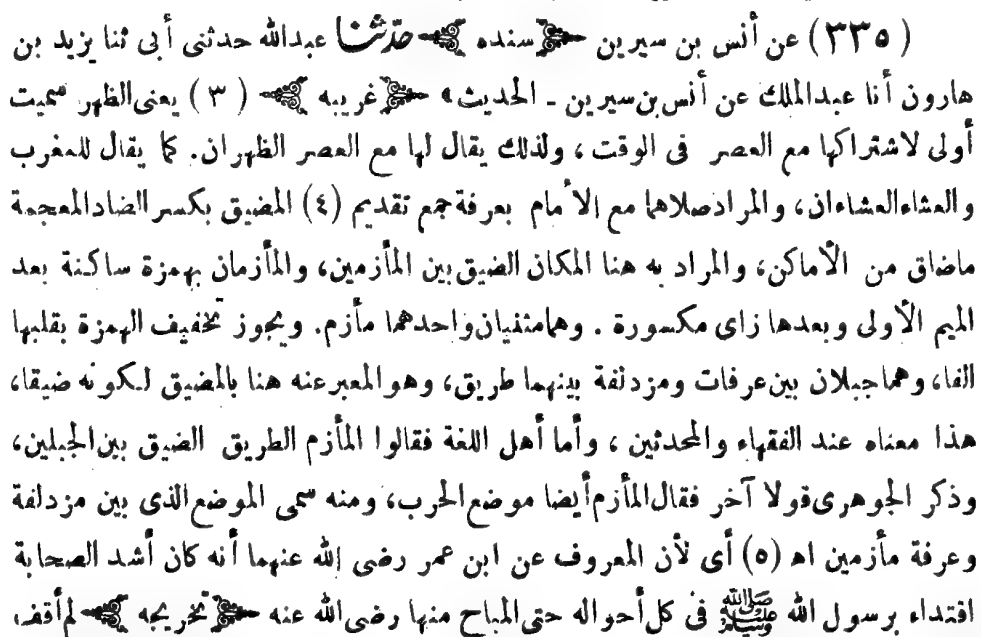 (٣٣٥) عن أنس بن سيرين ﴿سنده﴾ حدّثنا عبدالله حدثنى أبى ثنا يزيد بن
هارون أنا عبدالملك عن أنس بن سيرين ـ الحديث» ﴿غريبه﴾ (٣) يعنى الظهر سميت
أولى لاشتراكها مع العصر فى الوقت، ولذلك يقال لها مع العصر الظهران. كما يقال للمغرب
والعشاء العشاءان، والمراد صلاهما مع الأمام بعرفة جمع تقديم (٤) المضيق بكسر الضاد المعجمة
ماضاق من الأماكن، والمراد به هنا المكان الضيق بين المأزمين، والمأزمان بهمزة ساكنة بعد
الميم الأولى وبعدها زاى مكسورة . وهما مثنيان واحدهما مأزم. ويجوز تخفيف الهمزة بقلبها
الفا، وهما جبلان بين عرفات ومزدلفة بينهما طريق، وهو المعبر عنه هنا بالمضيق لكونه ضيقا،
هذا معناه عند الفقهاء والمحدثين ، وأما أهل اللغة فقالوا المأزم الطريق الضيق بين الجبلين،
وذكر الجوهرى قولا آخر فقال المأزم أيضا موضع الحرب، ومنه سمى الموضع الذى بين مزدلفة
وعرفة مأزمين اه (٥) أى لأن المعروف عن ابن عمر رضى الله عنهما أنه كان أشد الصحابة
اقتداء برسول الله ﷺ فى كل أحواله حتى المباح منها رضى الله عنه ﴿تخريجه﴾ لم أقف